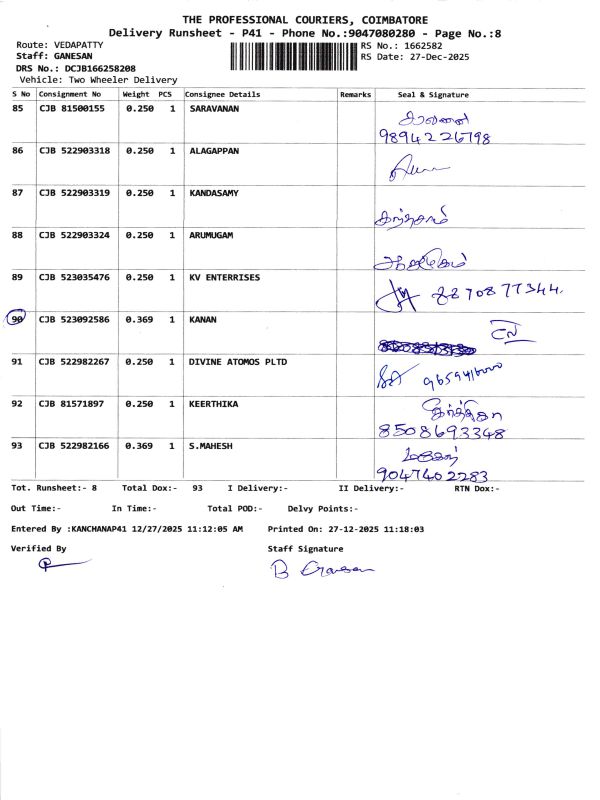 THE PROFESSIONAL COURIERS, COIMBATORE
Delivery Runsheet - P41 - Phone No.:9047080280 - Page No.:8
Route: VEDAPATTY
RS No.: 1662582
Staff: GANESAN
RS Date: 27-Dec-2025
DRS No.: DCJB166258208
Vehicle: Two Wheeler Delivery
S No Consignment No Weight PCS Consignee Details Remarks Seal & Signature
85 CJB 81500155 0.250 1 SARAVANAN
9894226798
86 CJB 522903318 0.250 1 ALAGAPPAN
87 CJB 522903319 0.250 1 KANDASAMY
88 CJB 522903324 0.250 1 ARUMUGAM
89 CJB 523035476 0.250 1 KV ENTERRISES
8870877344.
90 CJB 523092586 0.369 1 KANAN
91 CJB 522982267 0.250 1 DIVINE ATOMOS PLTD
92 CJB 81571897 0.250 1 KEERTHIKA
கீர்த்திகா
8508693348
93 CJB 522982166 0.369 1 S.MAHESH
மகேஷ்
9047402283
Tot. Runsheet:- 8 Total Dox:- 93 I Delivery:- II Delivery:- RTN Dox:-
Out Time:- In Time:- Total POD:- Delvy Points:-
Entered By :KANCHANAP41 12/27/2025 11:12:05 AM Printed On: 27-12-2025 11:18:03
Verified By Staff Signature